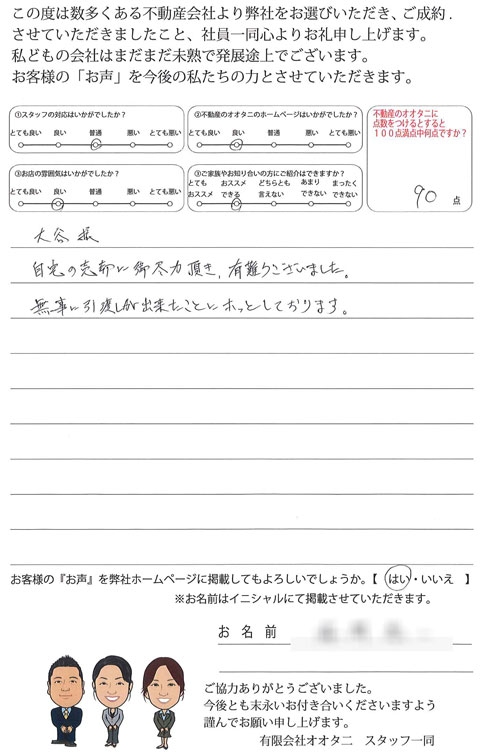 この度は数多くある不動産会社より弊社をお選びいただき、ご成約.
させていただきましたこと、社員一同心よりお礼申し上げます。
私どもの会社はまだまだ未熟で発展途上でございます。
お客様の「お声」を今後の私たちの力とさせていただきます。
①スタッフの対応はいかがでしたか？
とても良い 良い 普通 悪い とても悪い
②不動産のオオタニのホームページはいかがでしたか？
とても良い 良い 普通 悪い とても悪い
不動産のオオタニに
点数をつけるとすると
１００点満点中何点ですか？
90 点
③お店の雰囲気はいかがでしたか？
とても良い 良い 普通 悪い とても悪い
③ご家族やお知り合いの方にご紹介はできますか？
とても おススメ どちらとも あまり まったく
おススメ できる 言えない できない できない
大谷 様
自宅の売却に御尽力頂き、有難うございました。
無事に引渡しが出来たことにホッとしております。
お客様の『お声』を弊社ホームページに掲載してもよろしいでしょうか。【 はい・いいえ 】
※お名前はイニシャルにて掲載させていただきます。
お 名 前
ご協力ありがとうございました。
今後とも末永いお付き合いくださいますよう
謹んでお願い申し上げます。
有限会社オオタニ スタッフ一同